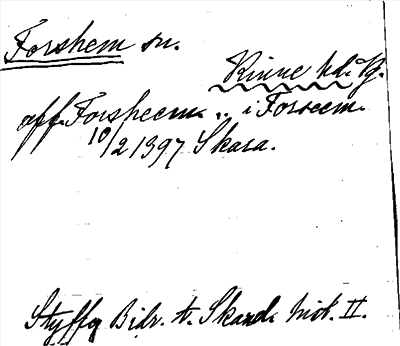 Forshem sn.
Kinne hd. Vg.
aff. Forsheem .. i Forseem.
10/2 1397 Skara.
Styffes Bidr. t. Skand. hist. II.